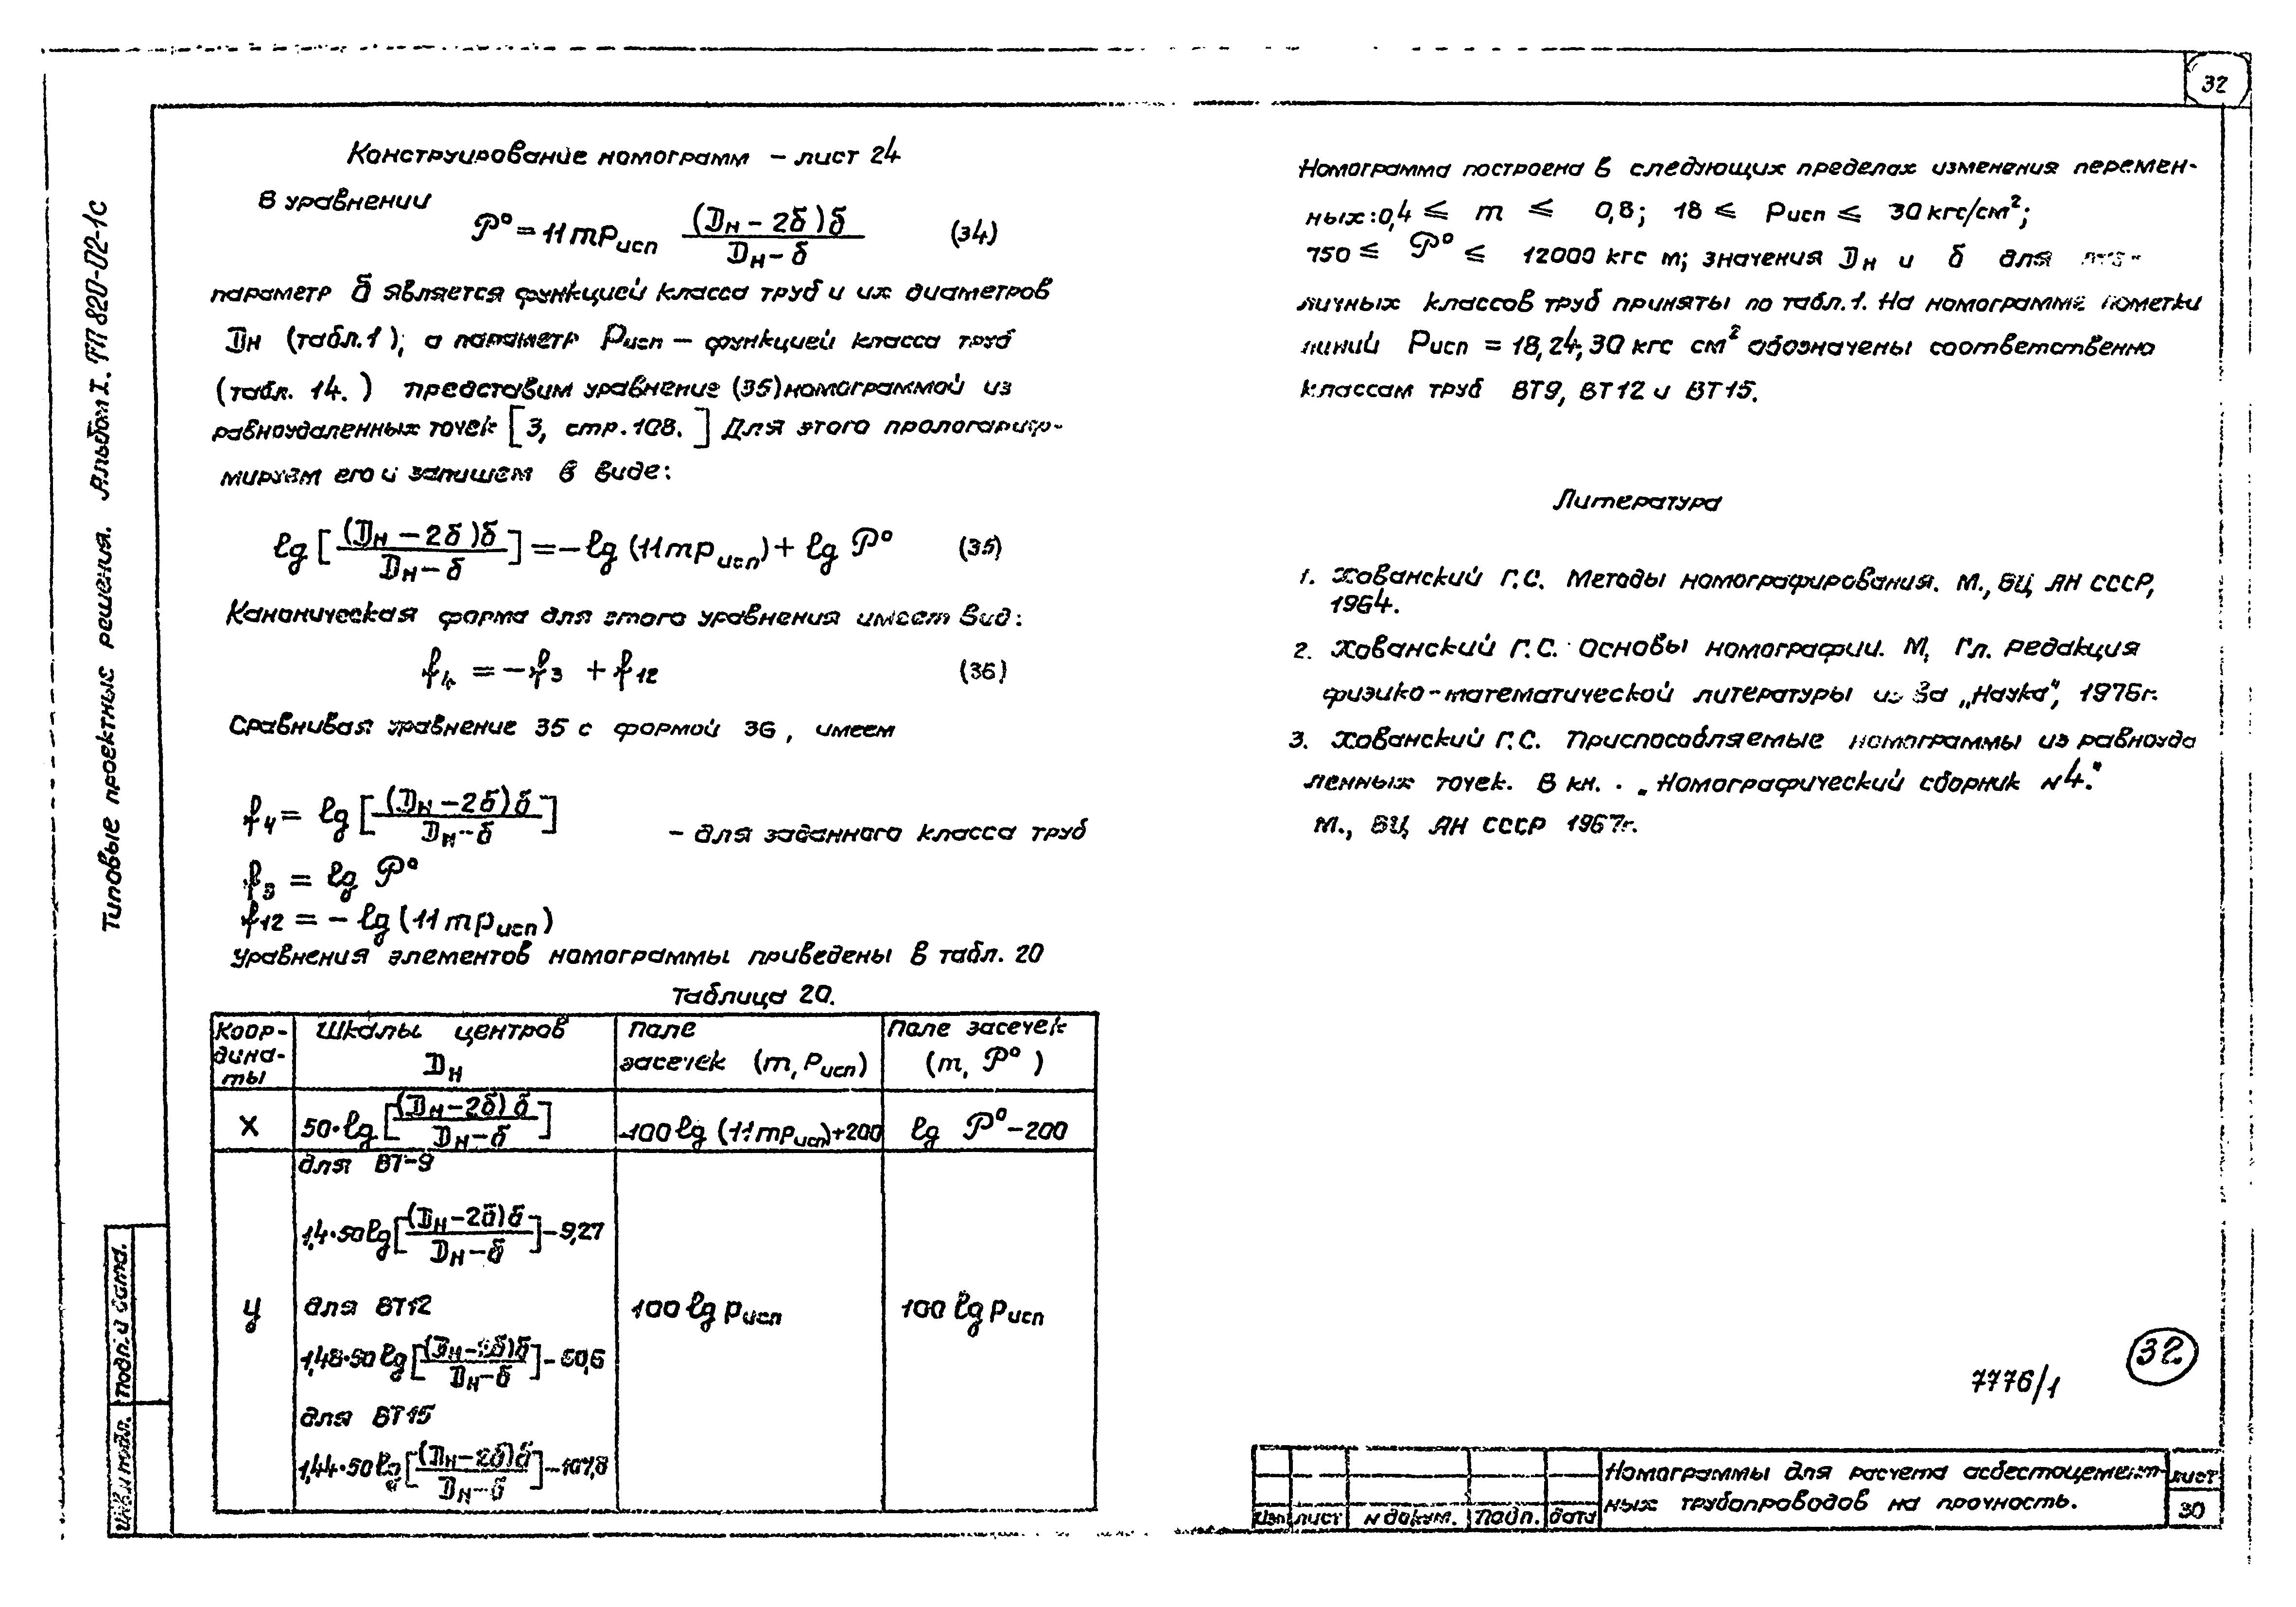 32
Типовые проектные решения. Альбом I. ТП 820-02-1с
Конструирование номограмм – лист 24
В уравнении
𝒫° = 11 m Pисп (Dн – 2δ)δ / Dн – δ (34)
параметр δ является функцией класса труб и их диаметров
Dн (табл. 1), а параметр Pисп – функцией класса труб
(табл. 14.) представим уравнение (35) номограммой из
равноудаленных точек [3, стр. 108.] Для этого прологариф-
мируем его и запишем в виде:
lg [(Dн – 2δ)δ / Dн – δ] = – lg (11 m pисп) + lg 𝒫° (35)
Каноническая форма для этого уравнения имеет вид:
f₄ = – f₃ + f₁₂ (36)
Сравнивая уравнение 35 с формой 36, имеем
f₄ = lg [(Dн – 2δ)δ / Dн – δ] – для заданного класса труб
f₃ = lg 𝒫°
f₁₂ = – lg (11 m pисп)
уравнения элементов номограммы приведены в табл. 20
Таблица 20.
Коор-
дина-
ты
Шкалы центров
Dн
Поле
засечек (m, Pисп)
Поле засечек
(m, 𝒫°)
X
50·lg [(Dн – 2δ)δ / Dн – δ]
-100 lg (11 m pисп) + 200
lg 𝒫° – 200
У
для ВТ-9
1,4·50 lg [(Dн – 2δ)δ / Dн – δ] – 9,27
для ВТ12
1,48·50 lg [(Dн – 2δ)δ / Dн – δ] – 60,6
для ВТ15
1,44·50 lg [(Dн – 2δ)δ / Dн – δ] – 107,8
100 lg pисп
100 lg pисп
Номограмма построена в следующих пределах изменения перемен-
ных: 0,4 ≤ m ≤ 0,8; 18 ≤ Pисп ≤ 30 кгс/см²;
750 ≤ 𝒫° ≤ 12000 кгс м; значения Dн и δ для
личных классов труб приняты по табл. 1. На номограмме пометки
линий Pисп = 18, 24, 30 кгс см² обозначены соответственно
классам труб ВТ9, ВТ12 и ВТ15.
Литература
1. Хованский Г.С. Методы номографирования. М., ВЦ АН СССР,
1964.
2. Хованский Г.С. Основы номографии. М, Гл. редакция
физико-математической литературы из-ва „Наука", 1976г.
3. Хованский Г.С. Приспособляемые номограммы из равноуда
ленных точек. В кн. . „Номографический сборник N4."
М., ВЦ АН СССР 1967г.
7776/1
32
Номограммы для расчета асбестоцемент-
ных трубопроводов на прочность.
лист
30
Изм лист N докум. Подп. дата
Подп. и дата.
Инв. N подл.